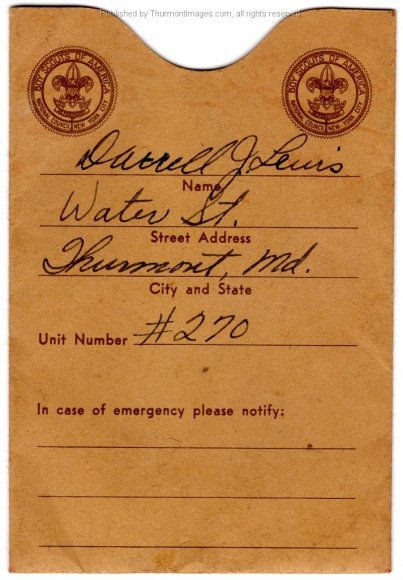 Published by ThurmontImages.com, all rights reserved
BOY SCOUTS OF AMERICA
NATIONAL COUNCIL NEW YORK CITY
BOY SCOUTS OF AMERICA
NATIONAL COUNCIL NEW YORK CITY
Darrell J. Lewis
Name
Water St.
Street Address
Thurmont, Md.
City and State
Unit Number #270
In case of emergency please notify: